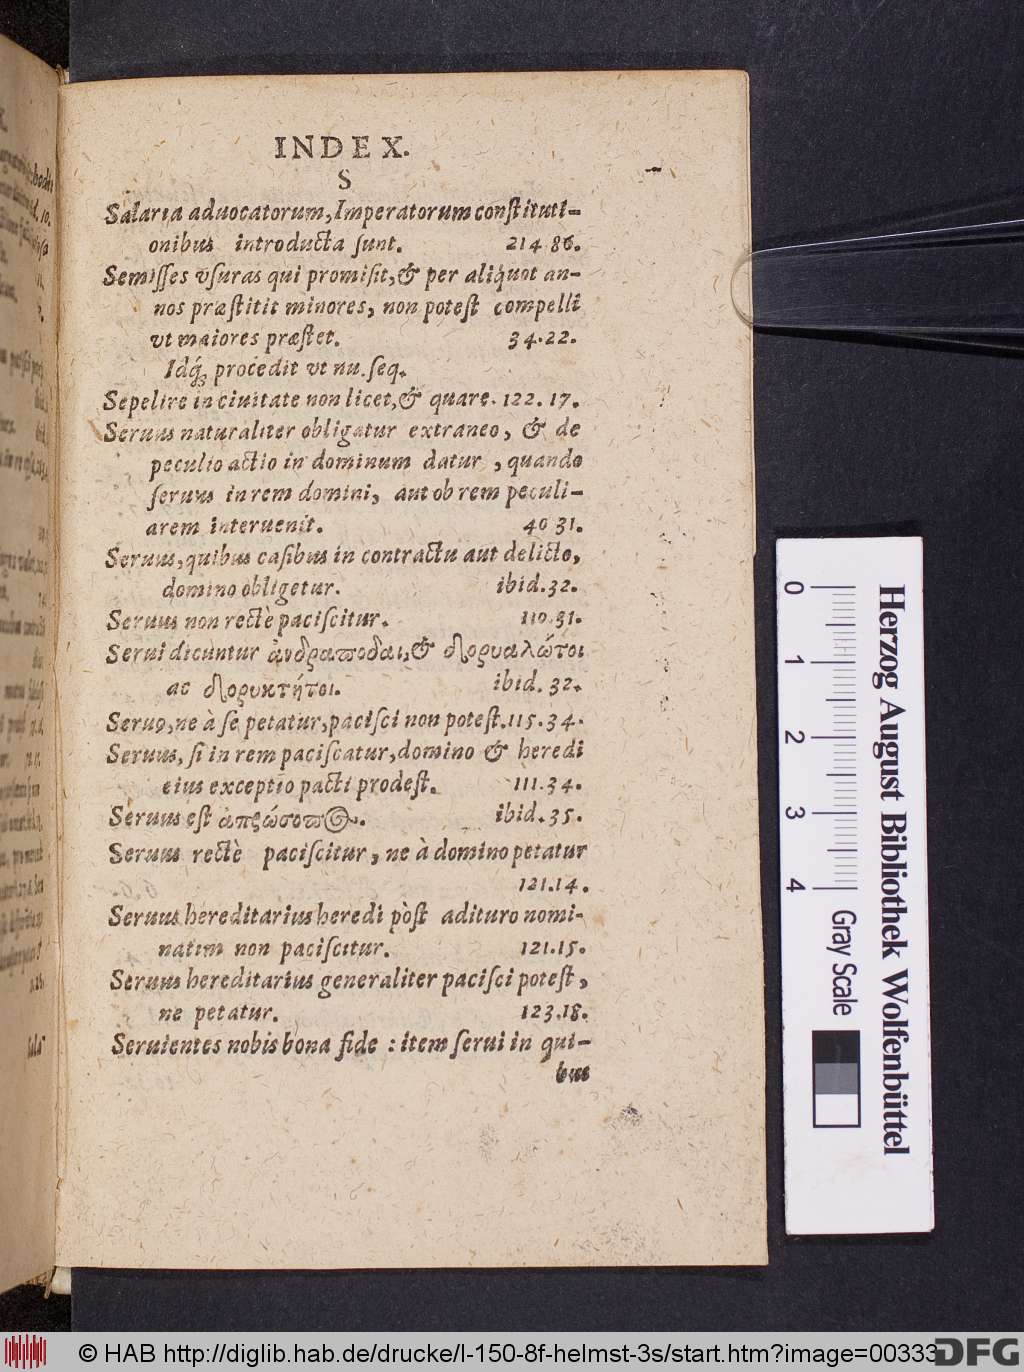 INDEX.
S
Salaria aduocatorum, Imperatorum constituti-
onibus introducta sunt. 214.86.
Semisses vsuras qui promisit, & per aliquot an-
nos præstitit minores, non potest compelli
vt maiores præstet. 34.22.
Idq́; procedit vt nu. seq.
Sepelire in ciuitate non licet, & quare. 122.17.
Seruus naturaliter obligatur extraneo, & de
peculio actio in dominum datur, quando
seruus in rem domini, aut ob rem peculi-
arem interuenit. 40 31.
Seruus, quibus casibus in contractu aut delicto,
domino obligetur. ibid.32.
Seruus non rectè paciscitur. 110.31.
Serui dicuntur ἀνδραποδαι, & δορυαλώτοι
ac δορυκτήτοι. ibid. 32.
Seruo, ne à se petatur, pacisci non potest. 115.34.
Seruus, si in rem paciscatur, domino & heredi
eius exceptio pacti prodest. 111.34.
Seruus est ἀπρώσοπος. ibid. 35.
Seruus rectè paciscitur, ne à domino petatur
121.14.
Seruus hereditarius heredi pòst adituro nomi-
natim non paciscitur. 121.15.
Seruus hereditarius generaliter pacisci potest,
ne petatur. 123.18.
Seruientes nobis bona fide : item serui in qui-
bus
Herzog August Bibliothek Wolfenbüttel
0 1 2 3 4 Gray Scale
© HAB http://diglib.hab.de/drucke/l-150-8f-helmst-3s/start.htm?image=00333
DFG